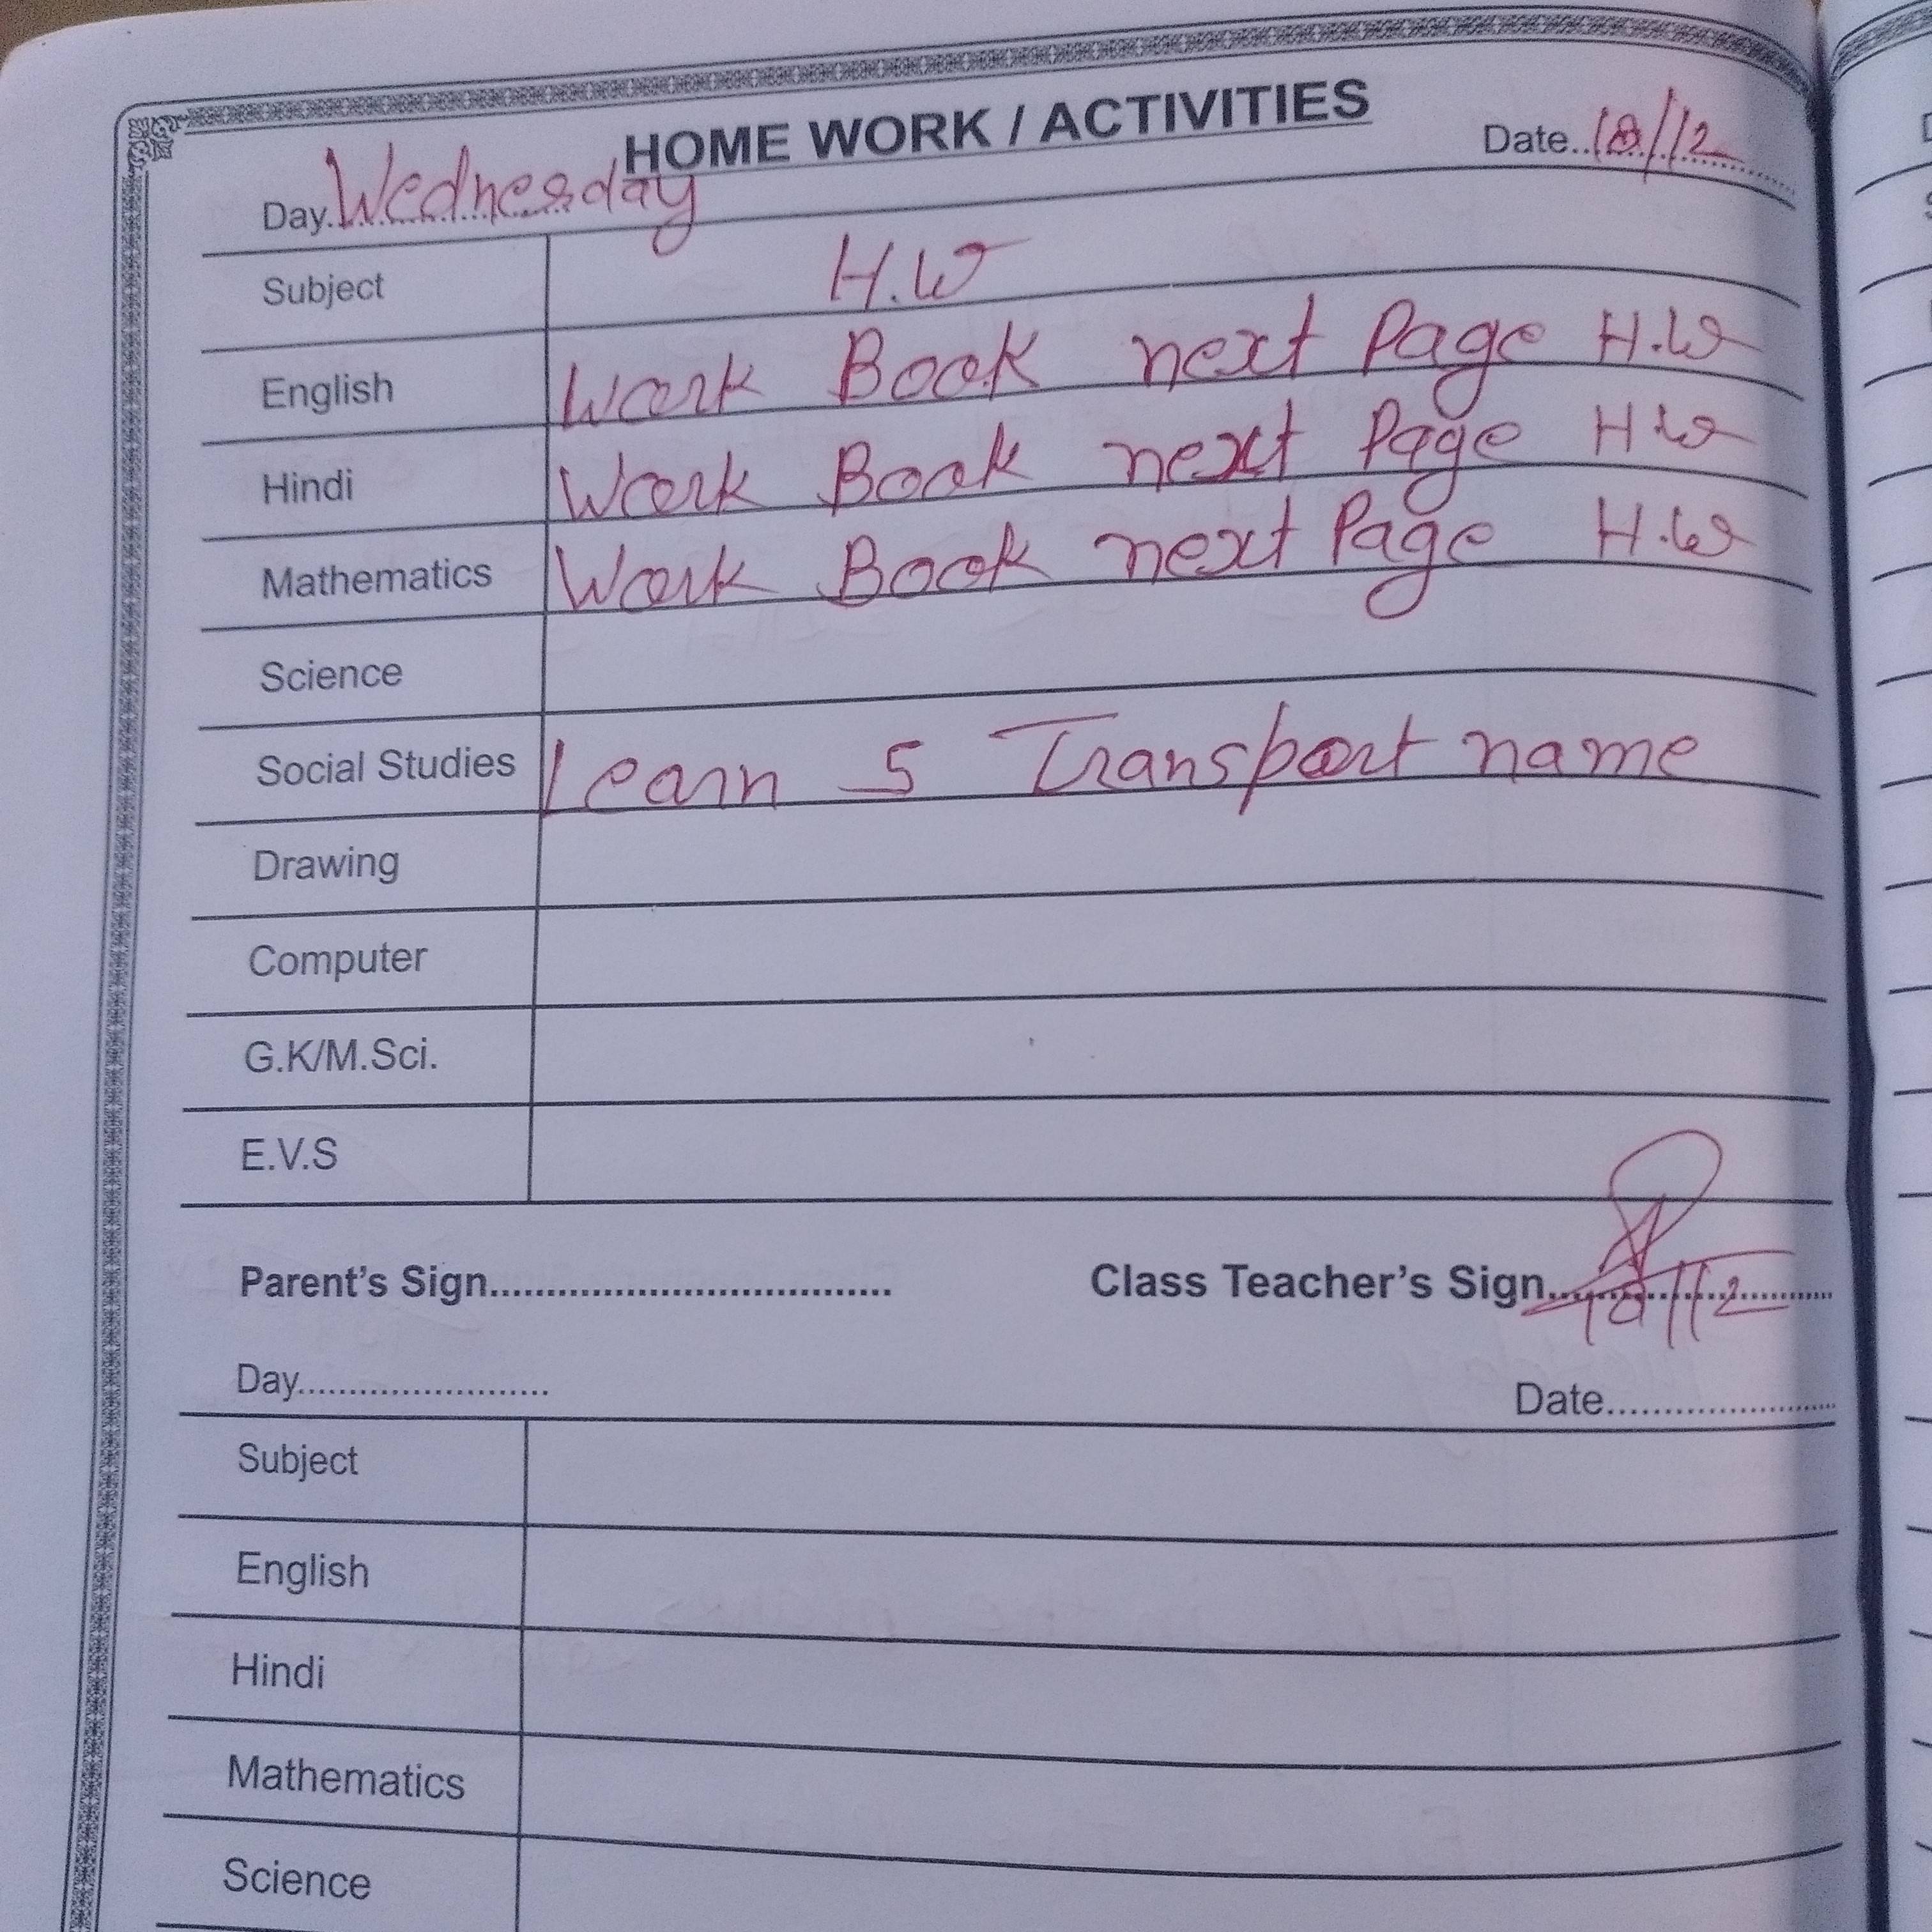 HOME WORK / ACTIVITIES
Day..Wednesday Date..18/12
Subject H.W
English Work Book next Page H.W
Hindi Work Book next Page H.W
Mathematics Work Book next Page H.W
Science
Social Studies Learn 5 Transport name
Drawing
Computer
G.K/M.Sci.
E.V.S
Parent's Sign.................................... Class Teacher's Sign.......18/12
Day........................ Date........................
Subject
English
Hindi
Mathematics
Science